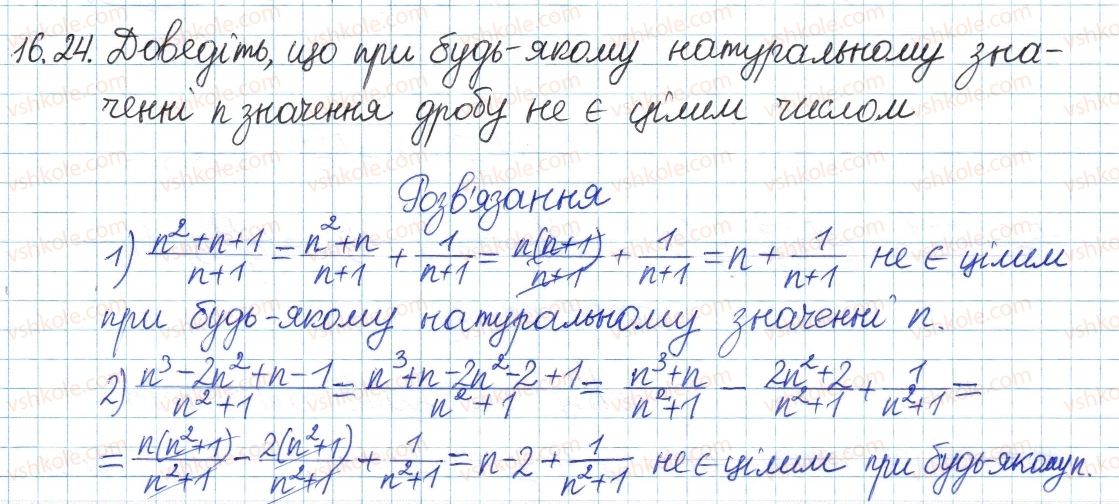 16.24. Доведіть, що при будь-якому натуральному зна-
ченні n значення дробу не є цілим числом
Розв'язання
1) (n² + n + 1)/(n + 1) = (n² + n)/(n + 1) + 1/(n + 1) = n(n + 1)/(n + 1) + 1/(n + 1) = n + 1/(n + 1) не є цілим
при будь-якому натуральному значенні n.
2) (n³ - 2n² + n - 1)/(n² + 1) = (n³ + n - 2n² - 2 + 1)/(n² + 1) = (n³ + n)/(n² + 1) - (2n² + 2)/(n² + 1) + 1/(n² + 1) =
= n(n² + 1)/(n² + 1) - 2(n² + 1)/(n² + 1) + 1/(n² + 1) = n - 2 + 1/(n² + 1) не є цілим при будь-якому n.